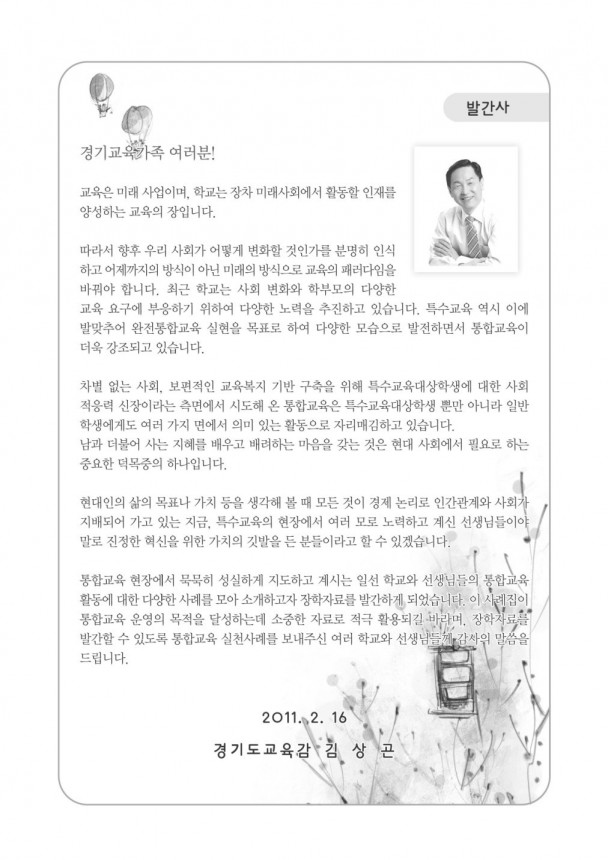 발간사
경기교육가족 여러분!
교육은 미래 사업이며, 학교는 장차 미래사회에서 활동할 인재를
양성하는 교육의 장입니다.
따라서 향후 우리 사회가 어떻게 변화할 것인가를 분명히 인식
하고 어제까지의 방식이 아닌 미래의 방식으로 교육의 패러다임을
바꿔야 합니다. 최근 학교는 사회 변화와 학부모의 다양한
교육 요구에 부응하기 위하여 다양한 노력을 추진하고 있습니다. 특수교육 역시 이에
발맞추어 완전통합교육 실현을 목표로 하여 다양한 모습으로 발전하면서 통합교육이
더욱 강조되고 있습니다.
차별 없는 사회, 보편적인 교육복지 기반 구축을 위해 특수교육대상학생에 대한 사회
적응력 신장이라는 측면에서 시도해 온 통합교육은 특수교육대상학생 뿐만 아니라 일반
학생에게도 여러 가지 면에서 의미 있는 활동으로 자리매김하고 있습니다.
남과 더불어 사는 지혜를 배우고 배려하는 마음을 갖는 것은 현대 사회에서 필요로 하는
중요한 덕목중의 하나입니다.
현대인의 삶의 목표나 가치 등을 생각해 볼 때 모든 것이 경제 논리로 인간관계와 사회가
지배되어 가고 있는 지금, 특수교육의 현장에서 여러 모로 노력하고 계신 선생님들이야
말로 진정한 혁신을 위한 가치의 깃발을 든 분들이라고 할 수 있겠습니다.
통합교육 현장에서 묵묵히 성실하게 지도하고 계시는 일선 학교와 선생님들의 통합교육
활동에 대한 다양한 사례를 모아 소개하고자 장학자료를 발간하게 되었습니다. 이 사례집이
통합교육 운영의 목적을 달성하는데 소중한 자료로 적극 활용되길 바라며, 장학자료를
발간할 수 있도록 통합교육 실천사례를 보내주신 여러 학교와 선생님들께 감사의 말씀을
드립니다.
2011. 2. 16
경기도교육감 김 상 곤